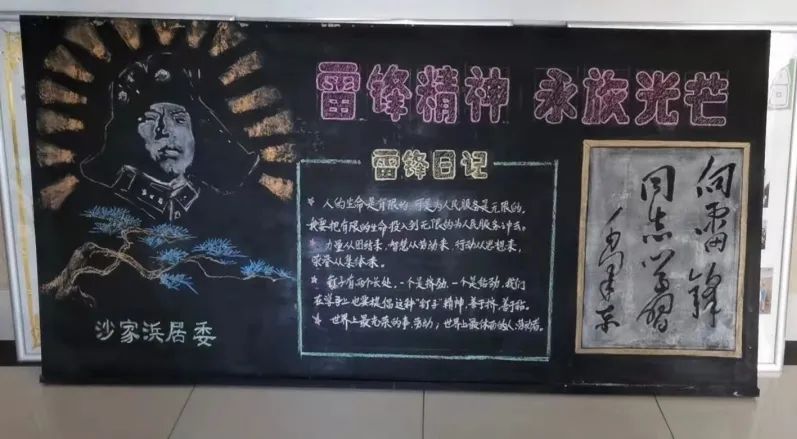 雷锋精神 永放光芒
雷锋日记
★ 人的生命是有限的，可是为人民服务是无限的，
我要把有限的生命投入到无限的为人民服务之中去。
★ 力量从团结来，智慧从劳动来，行动从思想来，
荣誉从集体来。
★ 钉子有两个长处，一个是挤劲，一个是钻劲，我们
在学习上也要提倡这种“钉子”精神，善于挤，善于钻。
★ 世界上最光荣的事，劳动；世界上最体面的人，劳动者。
向雷锋
同志学习
毛泽东
沙家浜居委